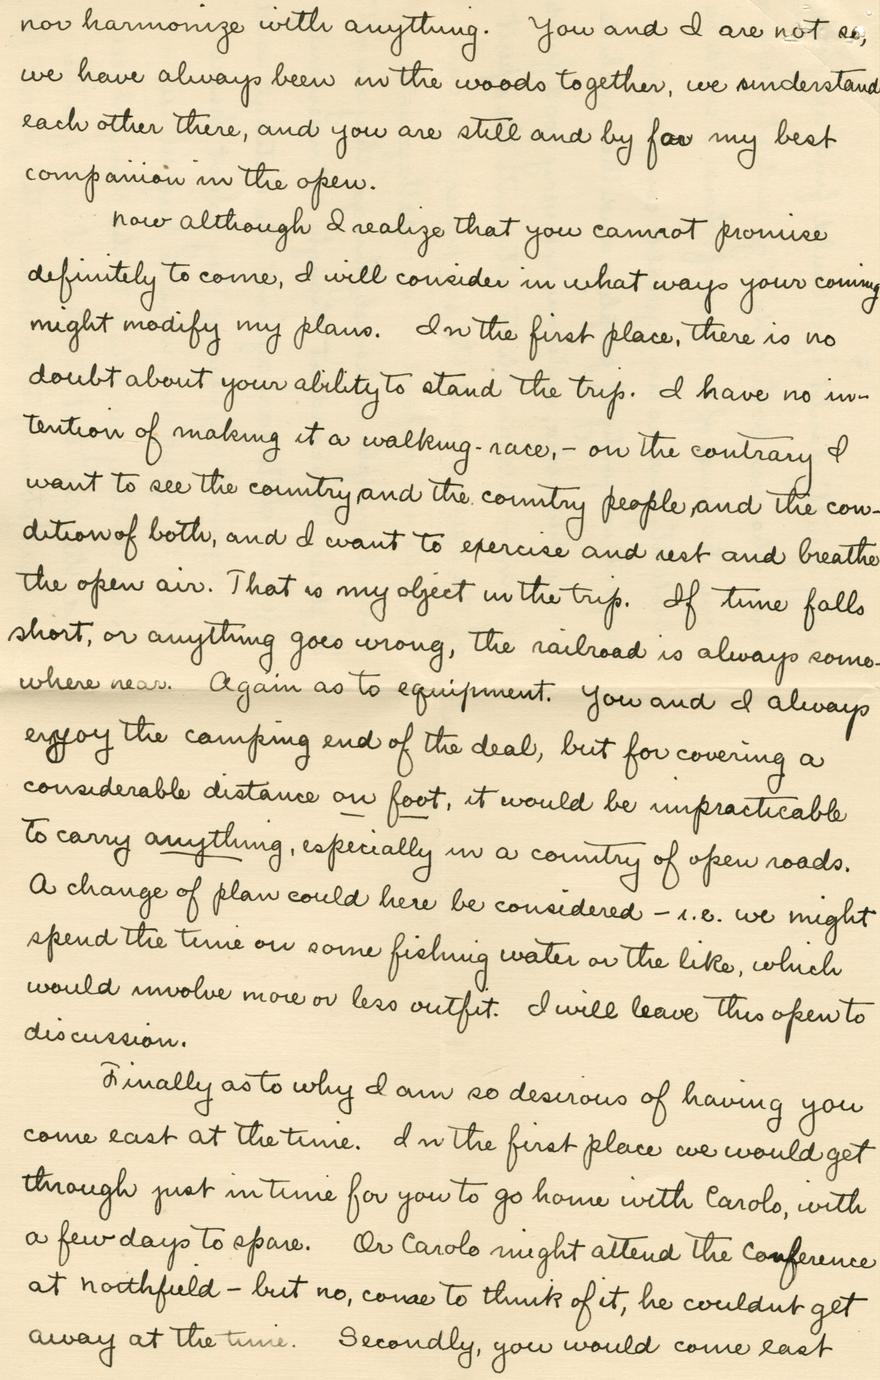 nor harmonize with anything. You and I are not so,
we have always been in the woods together, we understand
each other there, and you are still and by far my best
companion in the open.
Now although I realize that you cannot promise
definitely to come, I will consider in what ways your coming
might modify my plans. In the first place, there is no
doubt about your ability to stand the trip. I have no in-
tention of making it a walking-race, - on the contrary I
want to see the country and the country people, and the con-
dition of both, and I want to exercise and rest and breathe
the open air. That is my object in the trip. If time falls
short, or anything goes wrong, the railroad is always some-
where near. Again as to equipment. You and I always
enjoy the camping end of the deal, but for covering a
considerable distance on foot, it would be impracticable
to carry anything, especially in a country of open roads.
A change of plan could here be considered - i.e. we might
spend the time on some fishing water or the like, which
would involve more or less outfit. I will leave this open to
discussion.
Finally as to why I am so desirous of having you
come east at the time. In the first place we would get
through just in time for you to go home with Carolo, with
a few days to spare. Or Carolo might attend the Conference
at Northfield - but no, come to think of it, he couldnt get
away at the time. Secondly, you would come east